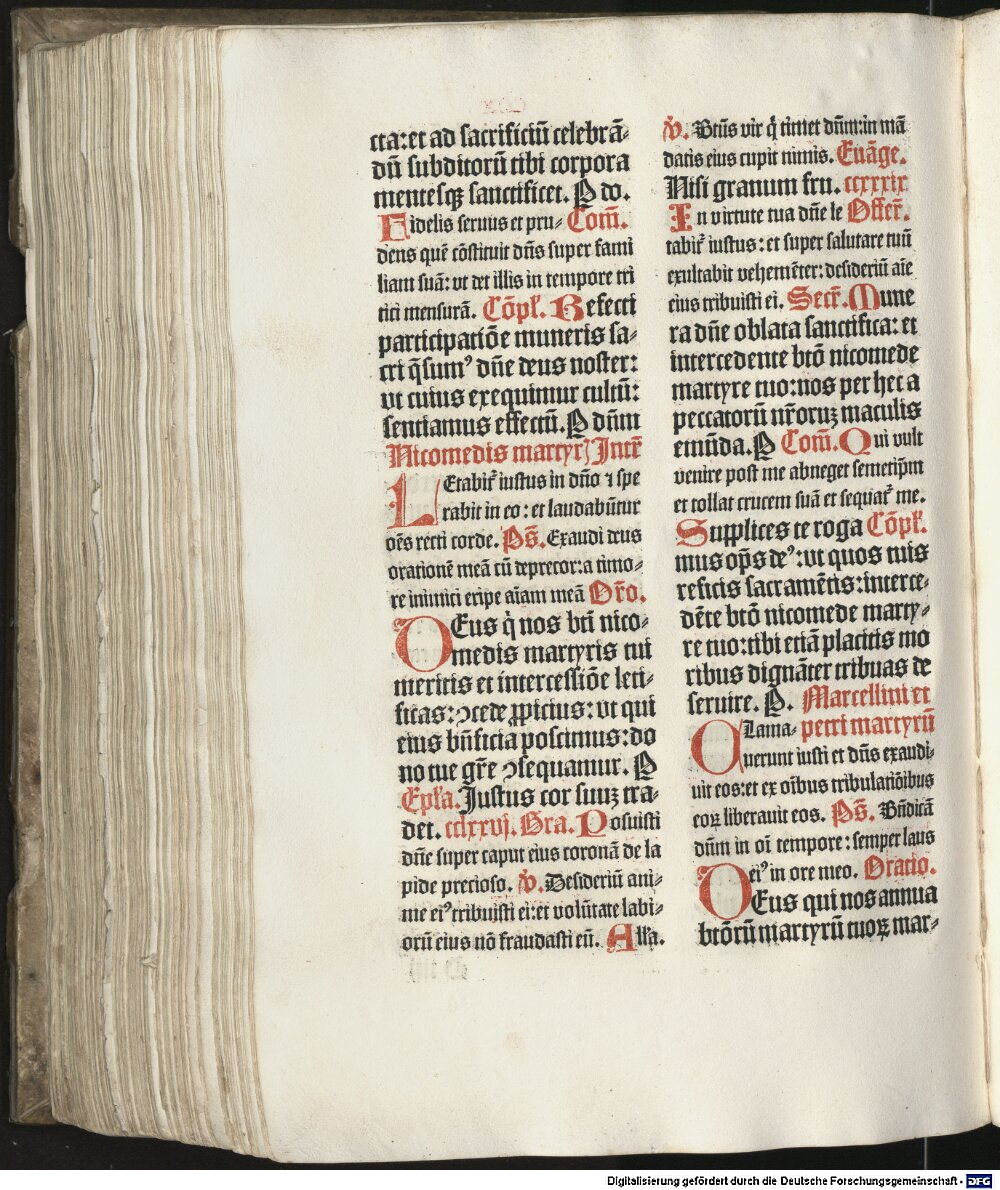 cta: et ad sacrificiū celebrā-
dū subditorū tibi corpora
mentesqꝫ sanctificet. P do.
Fidelis seruus et pru- Com̄.
dens quē cōstituit dn̄s super fami
liam suā: vt det illis in tempore tri
tici mensurā. Cōpl'. Refecti
participatiōe muneris sa-
cri q̄sumꝰ dn̄e deus noster:
vt cuius exequimur cultū:
sentiamus effectū. P dn̄m
Nicomedis martyrꝭ Intr̄
LEtabit᷑ iustus in dn̄o ⁊ spe
rabit in eo: et laudabūtur
oēs recti corde. Ps̄. Exaudi deus
orationē meā cū deprecor: a timo-
re inimici eripe aīam meā Or̄o.
DEus q̇ nos bt̄i nico-
medis martyris tui
meritis et intercessiōe leti-
ficas: ꝯcede ꝓpicius: vt qui
eius bn̄ficia poscimus: do
no tue gr̄e ꝯsequamur. P
Epl'a. Justus cor suuꝫ tra-
det. cclxxvj. Gra. Posuisti
dn̄e super caput eius coronā de la
pide precioso. v̇. Desideriū ani-
me eiꝰ tribuisti ei: et volūtate labi-
orū eius nō fraudasti eū. All'a.
v̇. Bt̄us vir q̇ timet dn̄m: in mā
datis eius cupit nimis. Euāge.
Nisi granum fru. ccxxxix
In virtute tua dn̄e le Offer̄.
tabit᷑ iustus: et super salutare tuū
exultabit vehemēter: desideriū aīe
eius tribuisti ei. Secr̄. Mune
ra dn̄e oblata sanctifica: et
intercedente btō nicomede
martyre tuo: nos per hec a
peccatorū nr̄oruꝫ maculis
emūda. P Com̄. Qui vult
venire post me abneget semetip̄m
et tollat crucem suā et sequat᷑ me.
Supplices te roga Cōpl'.
mus op̄s deꝰ: vt quos tuis
reficis sacramētis: interce-
dēte btō nicomede marty-
re tuo: tibi etiā placitis mo
ribus dignāter tribuas de
seruire. P. Marcellini et
CLama- petri martyrū
uerunt iusti et dn̄s exaudi-
uit eos: et ex oībus tribulatiōibus
eoꝝ liberauit eos. Ps̄. Bn̄dicā
dn̄m in oī tempore: semper laus
eiꝰ in ore meo. Oratio.
DEus qui nos annua
btōrū martyrū tuoꝝ mar-
Digitalisierung gefördert durch die Deutsche Forschungsgemeinschaft - DFG